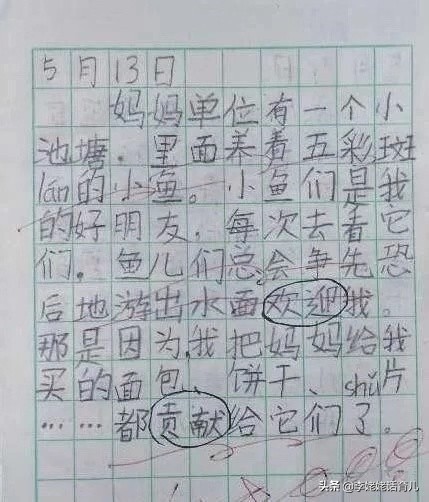 5月13日
妈妈单位有一个小
池塘.里面养着五彩斑
lán的小鱼。小鱼们是我
的好朋友，每次去看它
们.鱼儿们总会争先恐
后地游出水面欢迎我。
那是因为,我把妈妈给我
买的面包、饼干、shǔ片
……都贡献给它们了。
头条@李姥姥诺育儿